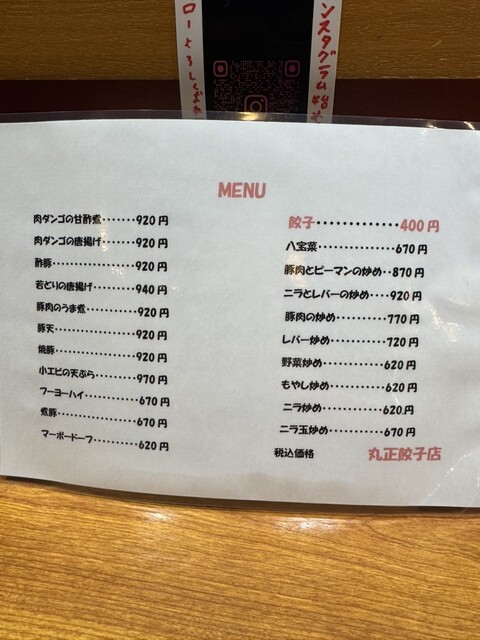 ンスタグラム始
ローよろしくおね
MENU
肉ダンゴの甘酢煮‥‥‥‥920円
肉ダンゴの唐揚げ‥‥‥‥920円
酢豚‥‥‥‥‥‥‥‥920円
若どりの唐揚げ‥‥‥‥940円
豚肉のうま煮‥‥‥‥‥920円
豚天‥‥‥‥‥‥‥‥920円
焼豚‥‥‥‥‥‥‥‥920円
小エビの天ぷら‥‥‥‥970円
フーヨーハイ‥‥‥‥‥670円
煮豚‥‥‥‥‥‥‥‥670円
マーボードーフ‥‥‥‥620円
餃子‥‥‥‥‥‥‥400円
八宝菜‥‥‥‥‥‥‥670円
豚肉とピーマンの炒め‥870円
ニラとレバーの炒め‥‥920円
豚肉の炒め‥‥‥‥‥770円
レバー炒め‥‥‥‥‥720円
野菜炒め‥‥‥‥‥‥620円
もやし炒め‥‥‥‥‥620円
ニラ炒め‥‥‥‥‥‥620円
ニラ玉炒め‥‥‥‥‥670円
税込価格
丸正餃子店